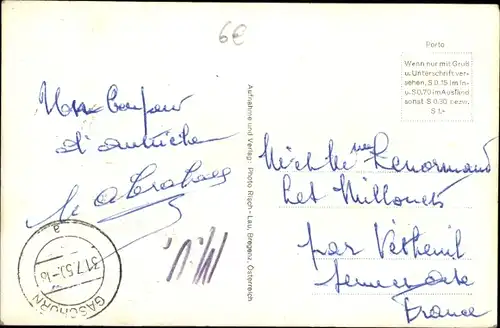 6€
Porto
Wenn nur mit Gruß
u. Unterschrift ver-
sehen, S 0.15 im In-
u. S 0,70 im Ausland
sonst S 0.30 bezw.
S 1,-
Mon bonjour
d'autriche
Aufnahme und Verlag: Photo Risch-Lau, Bregenz, Österreich
GASCHURN
31.7.5
a
Mr et Mme Lenormand
Les Millonets
par Vétheuil
Seine et Oise
France